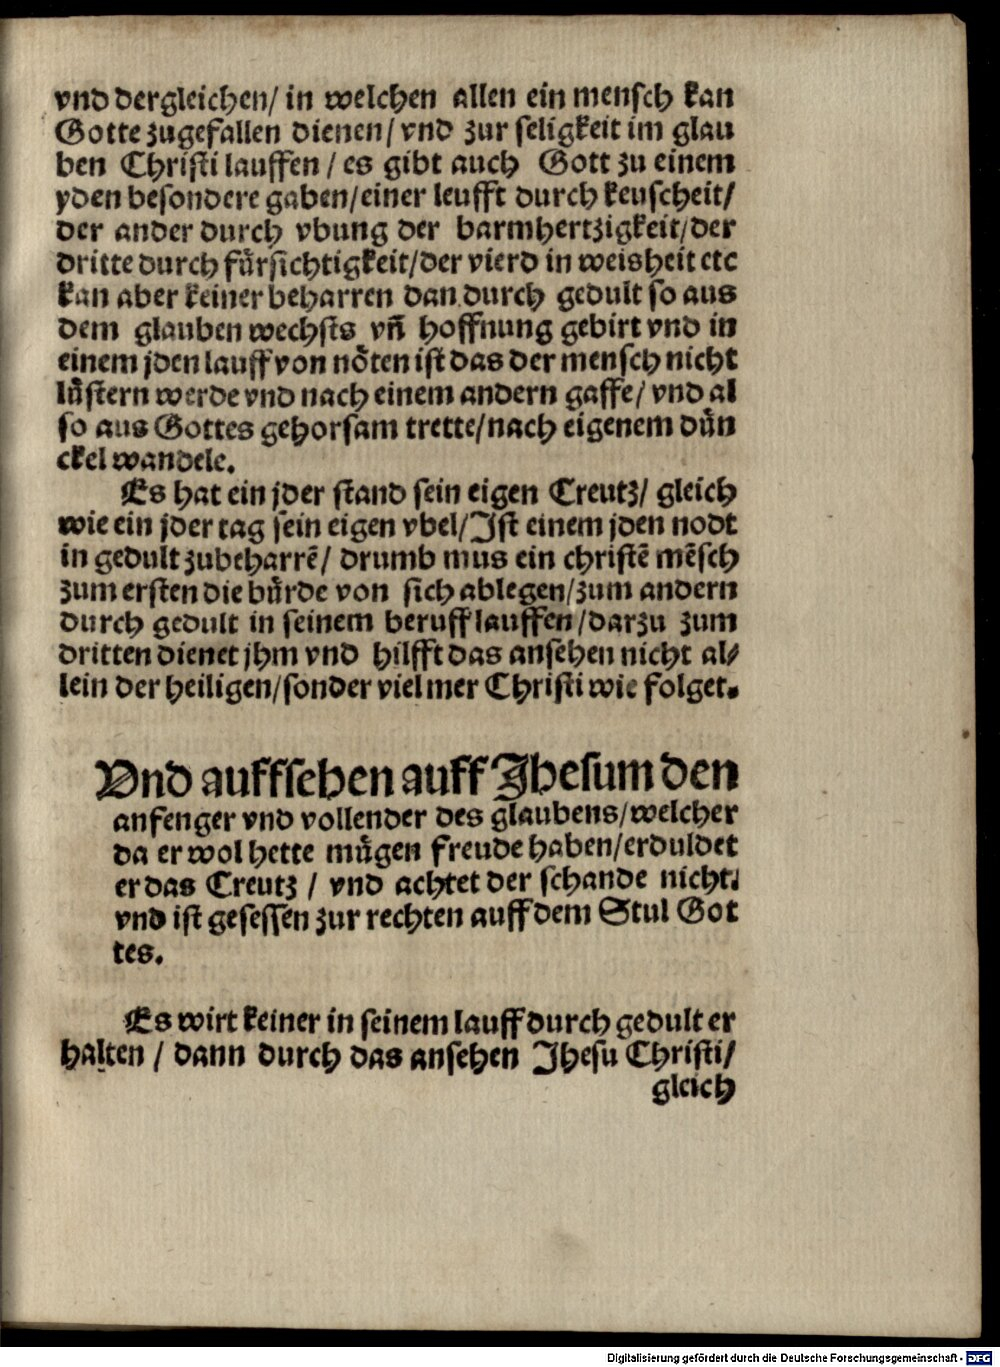 vnd dergleichen/ in welchen allen ein mensch kan
Gotte zugefallen dienen/ vnd zur seligkeit im glau
ben Christi lauffen / es gibt auch Gott zu einem
yden besondere gaben/einer leufft durch keuscheit/
der ander durch vbung der barmhertzigkeit/der
dritte durch fürsichtigkeit/der vierd in weisheit etc
kan aber keiner beharren dan durch gedult so aus
dem glauben wechsts vn̄ hoffnung gebirt vnd in
einem jden lauff von nöten ist das der mensch nicht
lüstern werde vnd nach einem andern gaffe/ vnd al
so aus Gottes gehorsam trette/nach eigenem dün
ckel wandele.
Es hat ein jder stand sein eigen Creutz/ gleich
wie ein jder tag sein eigen vbel/Ist einem jden nodt
in gedult zubeharrē/ drumb mus ein christē mēsch
zum ersten die bürde von sich ablegen/zum andern
durch gedult in seinem beruff lauffen/darzu zum
dritten dienet jhm vnd hilfft das ansehen nicht al⸗
lein der heiligen/sonder viel mer Christi wie folget.
Vnd auffsehen auff Jhesum den
anfenger vnd vollender des glaubens/welcher
da er wol hette mügen freude haben/erduldet
er das Creutz / vnd achtet der schande nicht.
vnd ist gesessen zur rechten auff dem Stul Got
tes.
Es wirt keiner in seinem lauff durch gedult er
halten / dann durch das ansehen Jhesu Christi/
gleich
Digitalisierung gefördert durch die Deutsche Forschungsgemeinschaft - DFG